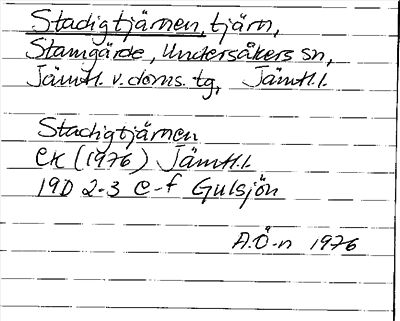 Stadigtjärnen, tjärn,
Stamgärde, Undersåkers sn,
Jämtl. v. doms. tg, Jämtl. l.
Stadigtjärnen
EK (1976) Jämtl. l.
19D 2-3 e-f Gulsjön
A.Ö-n 1976